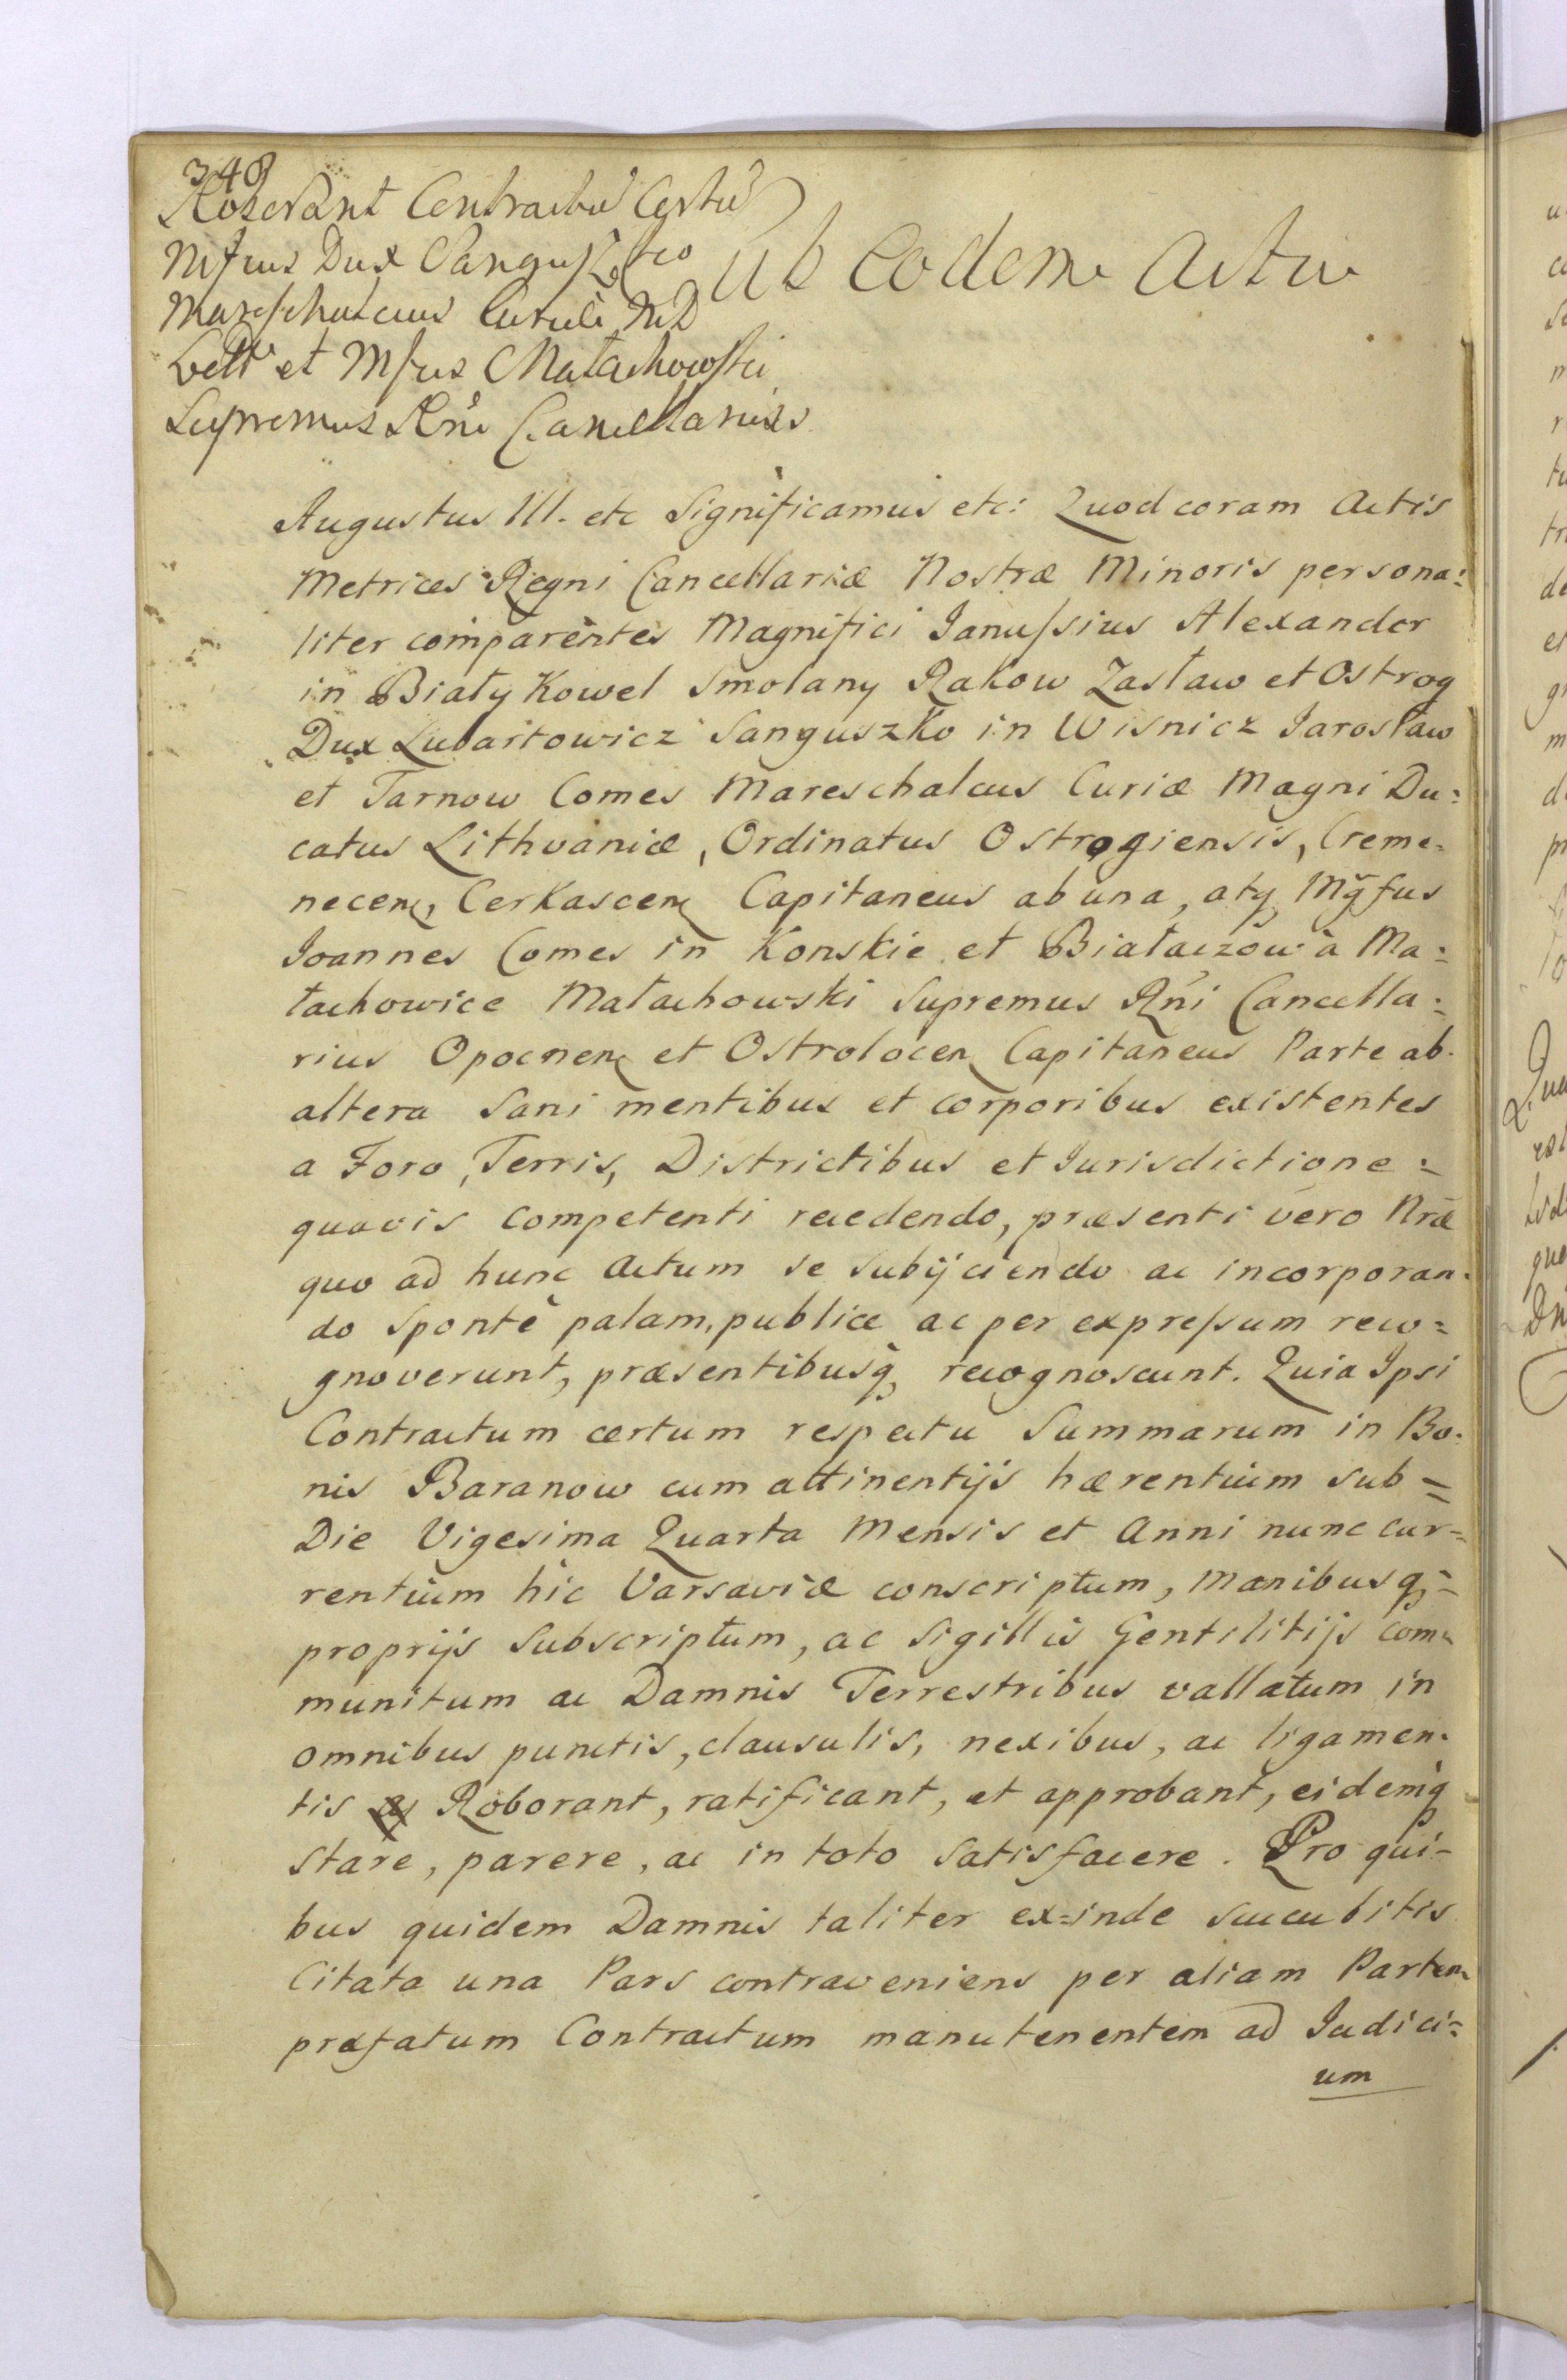 348
Roborant Contractū Certū
Mfcus Dux Sanguszko
Mareschalcus Curiæ MD
Litt et Mfcus Małachowski
Supremus Rni Cancellarius
Sub Eodem Actu
Augustus III. etc Significamus etc: Quod coram Actis
Metrices Regni Cancellariæ Nostræ Minoris persona:
liter comparentes Magnifici Ianussius Alexander
in Biały Kowel Smolany Rakow Zasław et Ostrog
Dux Lubartowicz Sanguszko in Wisnicz Iarosław
et Tarnow Comes Mareschalcus Curiæ Magni Du:
catus Lithvaniæ, Ordinatus Ostrogiensis, Creme:
necen, Cerkascen Capitaneus ab una, atq Mgfus
Ioannes Comes in Konskie et Białaczow à Ma:
łachowice Małachowski Supremus Rni Cancella:
rius Opocnen et Ostrolocen Capitaneus Parte ab
altera Sani mentibus et corporibus existentes
a Foro, Terris, Districtibus et Iurisdictione =
quavis competenti recedendo, præsenti vero Nræ
quo ad hunc Actum se subijciendo ac incorporan:
do Spontè palam, publice ac per expressum reco=
gnoverunt, præsentibusq recognoscunt. Quia Ipsi
Contractum certum respectu Summarum in Bo:
nis Baranow cum attinentijs hærentium sub =
Die Vigesima Quarta Mensis et Anni nunc cur=
rentium hic Varsaviæ conscriptum, Manibusq =
proprijs Subscriptum, ac Sigillis Gentilitijs com=
munitum ac Damnis Terrestribus vallatum in
omnibus punctis, clausulis, nexibus, ac ligamen:
tis Roborant, ratificant, et approbant, eidemq
stare, parere, ac in toto satisfacere. Pro qui=
bus quidem Damnis taliter ex=inde succubitis
Citata una Pars contraveniens per aliam Partem
præfatum Contractum manutenentem ad Iudici=
um